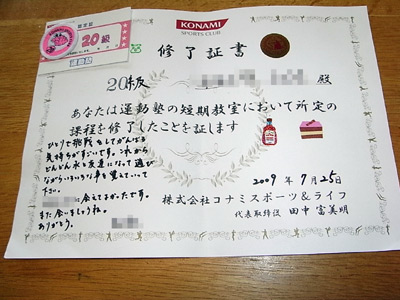 認定証
20級
運動塾
KONAMI
SPORTS CLUB
修了証書
20級
殿
あなたは運動塾の短期教室において所定の
課程を修了したことを証します
ひとりで挑戦をしてがんばる
気持ちがすごいです。これから
どんどん水と友達になって遊び
ながらいろいろな事を覚えていって
下さい。
に会えてよかったです。
また会いましょうね。
ありがとう。
2009年7月25日
株式会社コナミスポーツ&ライフ
代表取締役 田中富美明